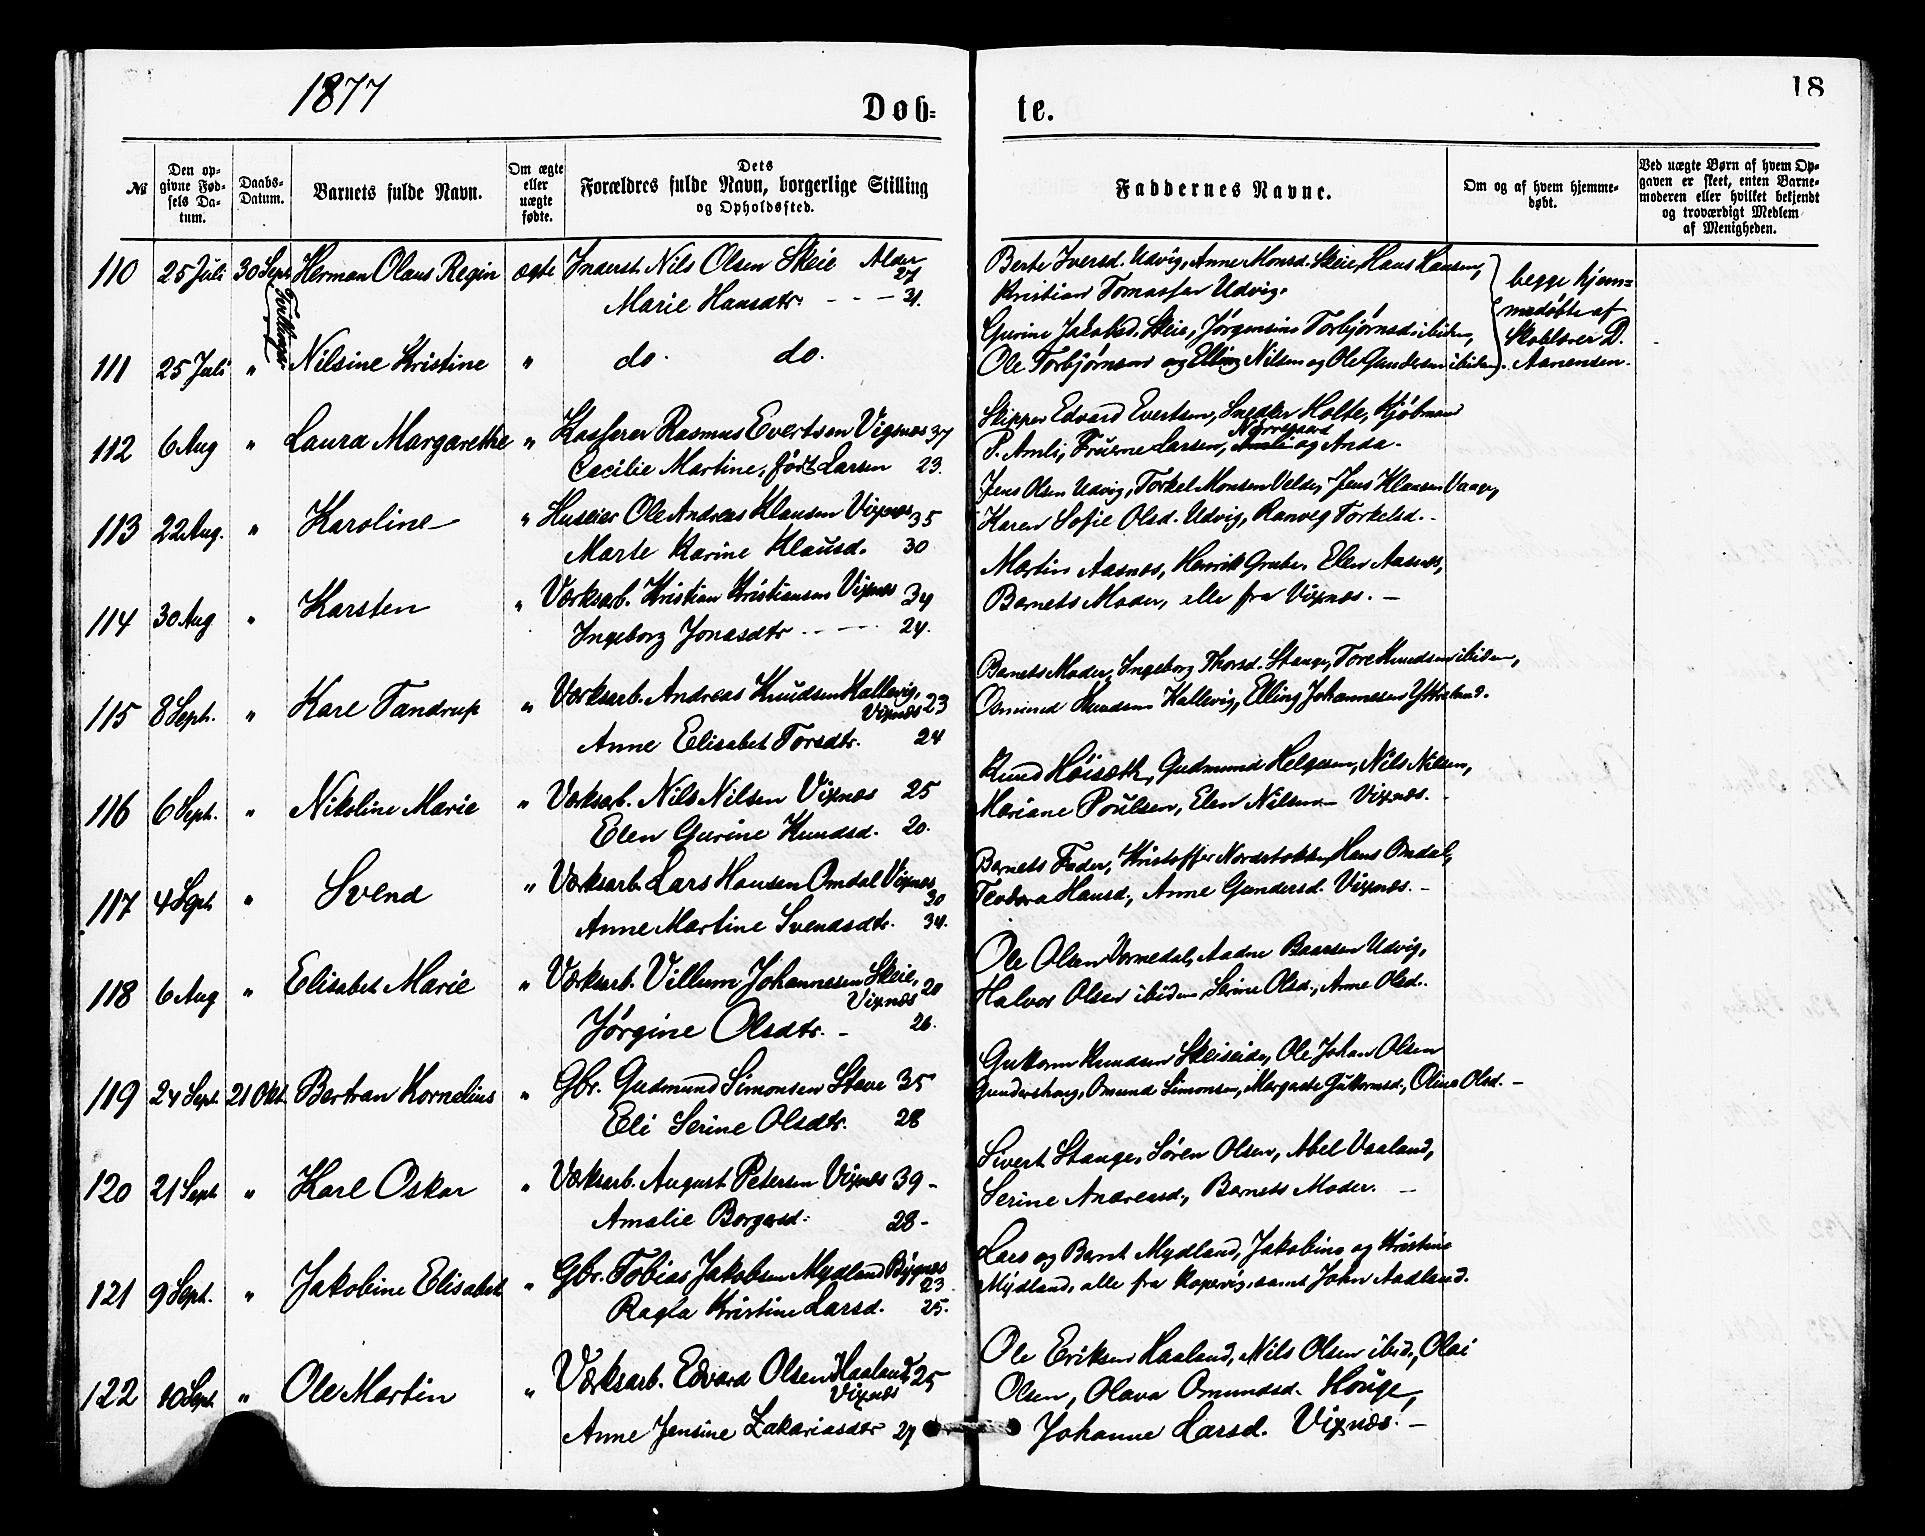 1877
18
Døb= te.
№
Den op-
givne Fød-
sels Da-
tum.
Daabs-
Datum.
Barnets fulde Navn.
Om ægte
eller
uægte
fødte.
Dets
Forældres fulde Navn, borgerlige Stilling
og Opholdssted.
Faddernes Navne.
Om og af hvem hjemme-
døbt.
Ved uægte Børn af hvem Op-
gaven er skeet, enten Barne-
moderen eller hvilket bekjendt
og troværdigt Medlem
af Menigheden.
110 25 Juli 30 Sept. Herman Olaus Regin ægte Inderst. Nils Olsen Skeie Alder 27
Marie Hansdtr. - - - 31.
Berte Iversd. Udvig, Anne Monsd. Skeie, Hans Hansen,
Kristian Tomassen Udvig.
Tvillinger
begge hjem=
medøbte af
Skolelærer D.
Aanensen.
111 25 Juli " Nilsine Kristine " do. do.
Gurine Jakobsd. Skeie, Jørgensine Torbjørnsd. ibidem,
Ole Torbjørnsen og Elling Nilsen og Ole Gundersen ibidem.
112 6 Aug " Laura Margarethe " Kasserer Rasmus Evertsen Vigsnæs 37
Cecilie Martine, født Larsen 23.
Skipper Edvard Evertsen, Snedker Holte, Kjøbmand
P. Amli, Fruerne Larsen, Nørregaard og Anda.
113 22 Aug. " Karoline " Huseier Ole Andreas Klausen Vixnæs 35
Marte Karine Klausd. 30
Jens Olsen Udvig, Torkel Monsen Velde, Jens Klausen Vaage,
Karen Sofie Olsd. Udvig, Ranveg Torkelsd. -
114 30 Aug " Karsten " Værksarb. Kristian Kristiansen Vixnæs 34
Ingeborg Jonasdtr - - - - 24.
Martin Aasnes, Henrik Gruber, Elen Aasnes,
Barnets Moder, alle fra Vixnæs. -
115 8 Sept. " Karl Tandrup " Værksarb. Andreas Knudsen Hallevig,
Vixnæs 23
Anne Elisabet Torsdtr. 24
Barnets Moder, Ingeborg Thorsd. Stange, Tore Knudsen ibidem,
Osmund Knudsen Hallevig, Elling Johannesen Ytreland.
116 6 Sept. " Nikoline Marie " Værksarb. Nils Nilsen Vixnæs 25
Elen Gurine Knudsd. 20.
Knud Høisæth, Gudmund Helgesen, Nils Nilsen,
Mariane Poulsen, Elen Nilsen - Vixnæs. -
117 4 Sept. " Svend " Værksarb. Lars Hansen Omdal Vixnæs
30
Anne Martine Svendsdtr. 34.
Barnets Fader, Kristoffer Nordstokke, Hans Omdal,
Teodora Hansd., Anne Gundersd. Vixnæs. -
118 6 Aug " Elisabet Marie " Værksarb. Villum Johannesen Skeie,
Vixnæs 20
Jørgine Olsdtr. - 26.
Ole Olsen Vormedal, Aadne Baarsen Udvig,
Halvor Olsen ibidem Serine Olsd., Anne Olsd..
119 24 Sept. 21 Okt. Bertran Kornelius " Gbr. Gudmund Simonsen Stave 35
Eli Serine Olsdtr. 28
Guttorm Knudsen Skeiseide, Ole Johan Olsen
Gundershaug, Omund Simonsen, Margrete Guttormsd., Olina Olsd. -
120 21 Sept " Karl Oskar " Værksarb. August Petersen Vixnæs 39 -
Amalie Borgersd: 28 -
Sivert Stange, Søren Olsen, Abel Vaaland,
Serine Andreasd., Barnets Moder. -
121 9 Sept. " Jakobine Elisabet " Gbr. Tobias Jakobsen Mydland Bygnes
23.
Ragla Kristine Larsd. 25.
Lars og Bernt Mydland, Jakobine og Kristine
Mydland, alle fra Kopervig, samt John Aadland.
122 10 Sept. " Ole Martin " Værksarb. Edvard Olsen Haaland 25
Vixnæs
Anne Jensine Zakariasdtr 27
Ole Eriksen Haaland, Nils Olsen ibid., Olai
Olsen, Olava Omundsd. Houge,
Johanne Larsd. Vixnæs. -